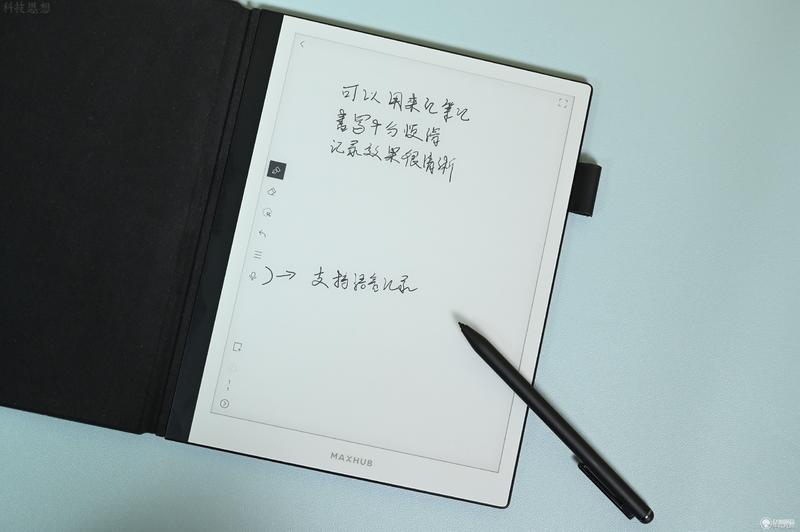 科技思想
可以用来记笔记
书写十分顺滑
记录效果很清晰
→ 支持语音记录
MAXHUB